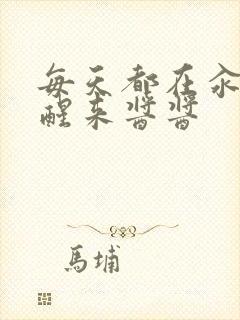 每天都在汆
醒来酱酱
馬埔